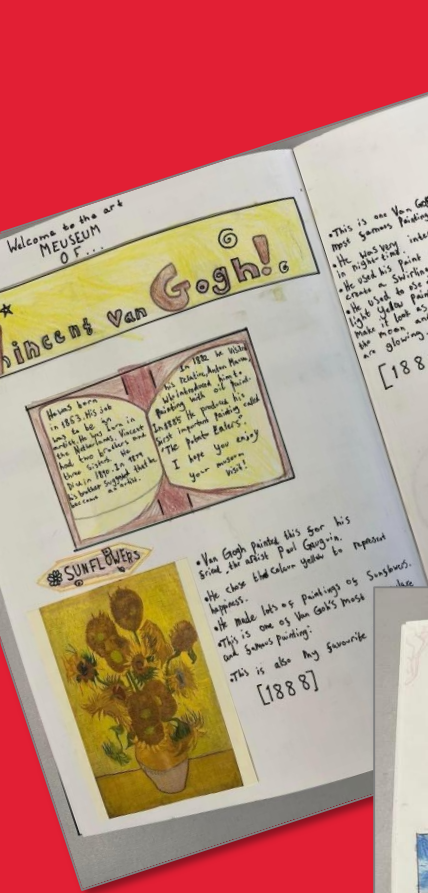 Welcome to the art
MEUSEUM
OF...
Vincent Van Gogh!
He was born
in 1853. His job
was to be an
artist. He was born in
the Netherlands. Vincent
had two brothers and
three sisters. He
Died in 1890. In 1879
his brother suggested that he
become an artist.
In 1882 he visited
his relative, Anton Mauve,
who introduced him to
Painting with oil paint.
In 1885 he produced his
first important Painting called
"The Potato Eaters".
I hope you enjoy
your museum
visit!
SUNFLOWERS
•Van Gogh painted this for his
friend the artist Paul Gauguin.
•He chose the colour yellow to represent
happiness.
•He made lots of paintings of Sunflowers.
•This is one of Van Goh's most
and famous Painting.
•This is also my favourite
[1888]
•This is one Van
most famous Painting
•He was very
in night time.
•He used his Paint
create a Swirling
•He used to use
light yellow Paint
make it look as
the moon and
are glowing.
[188